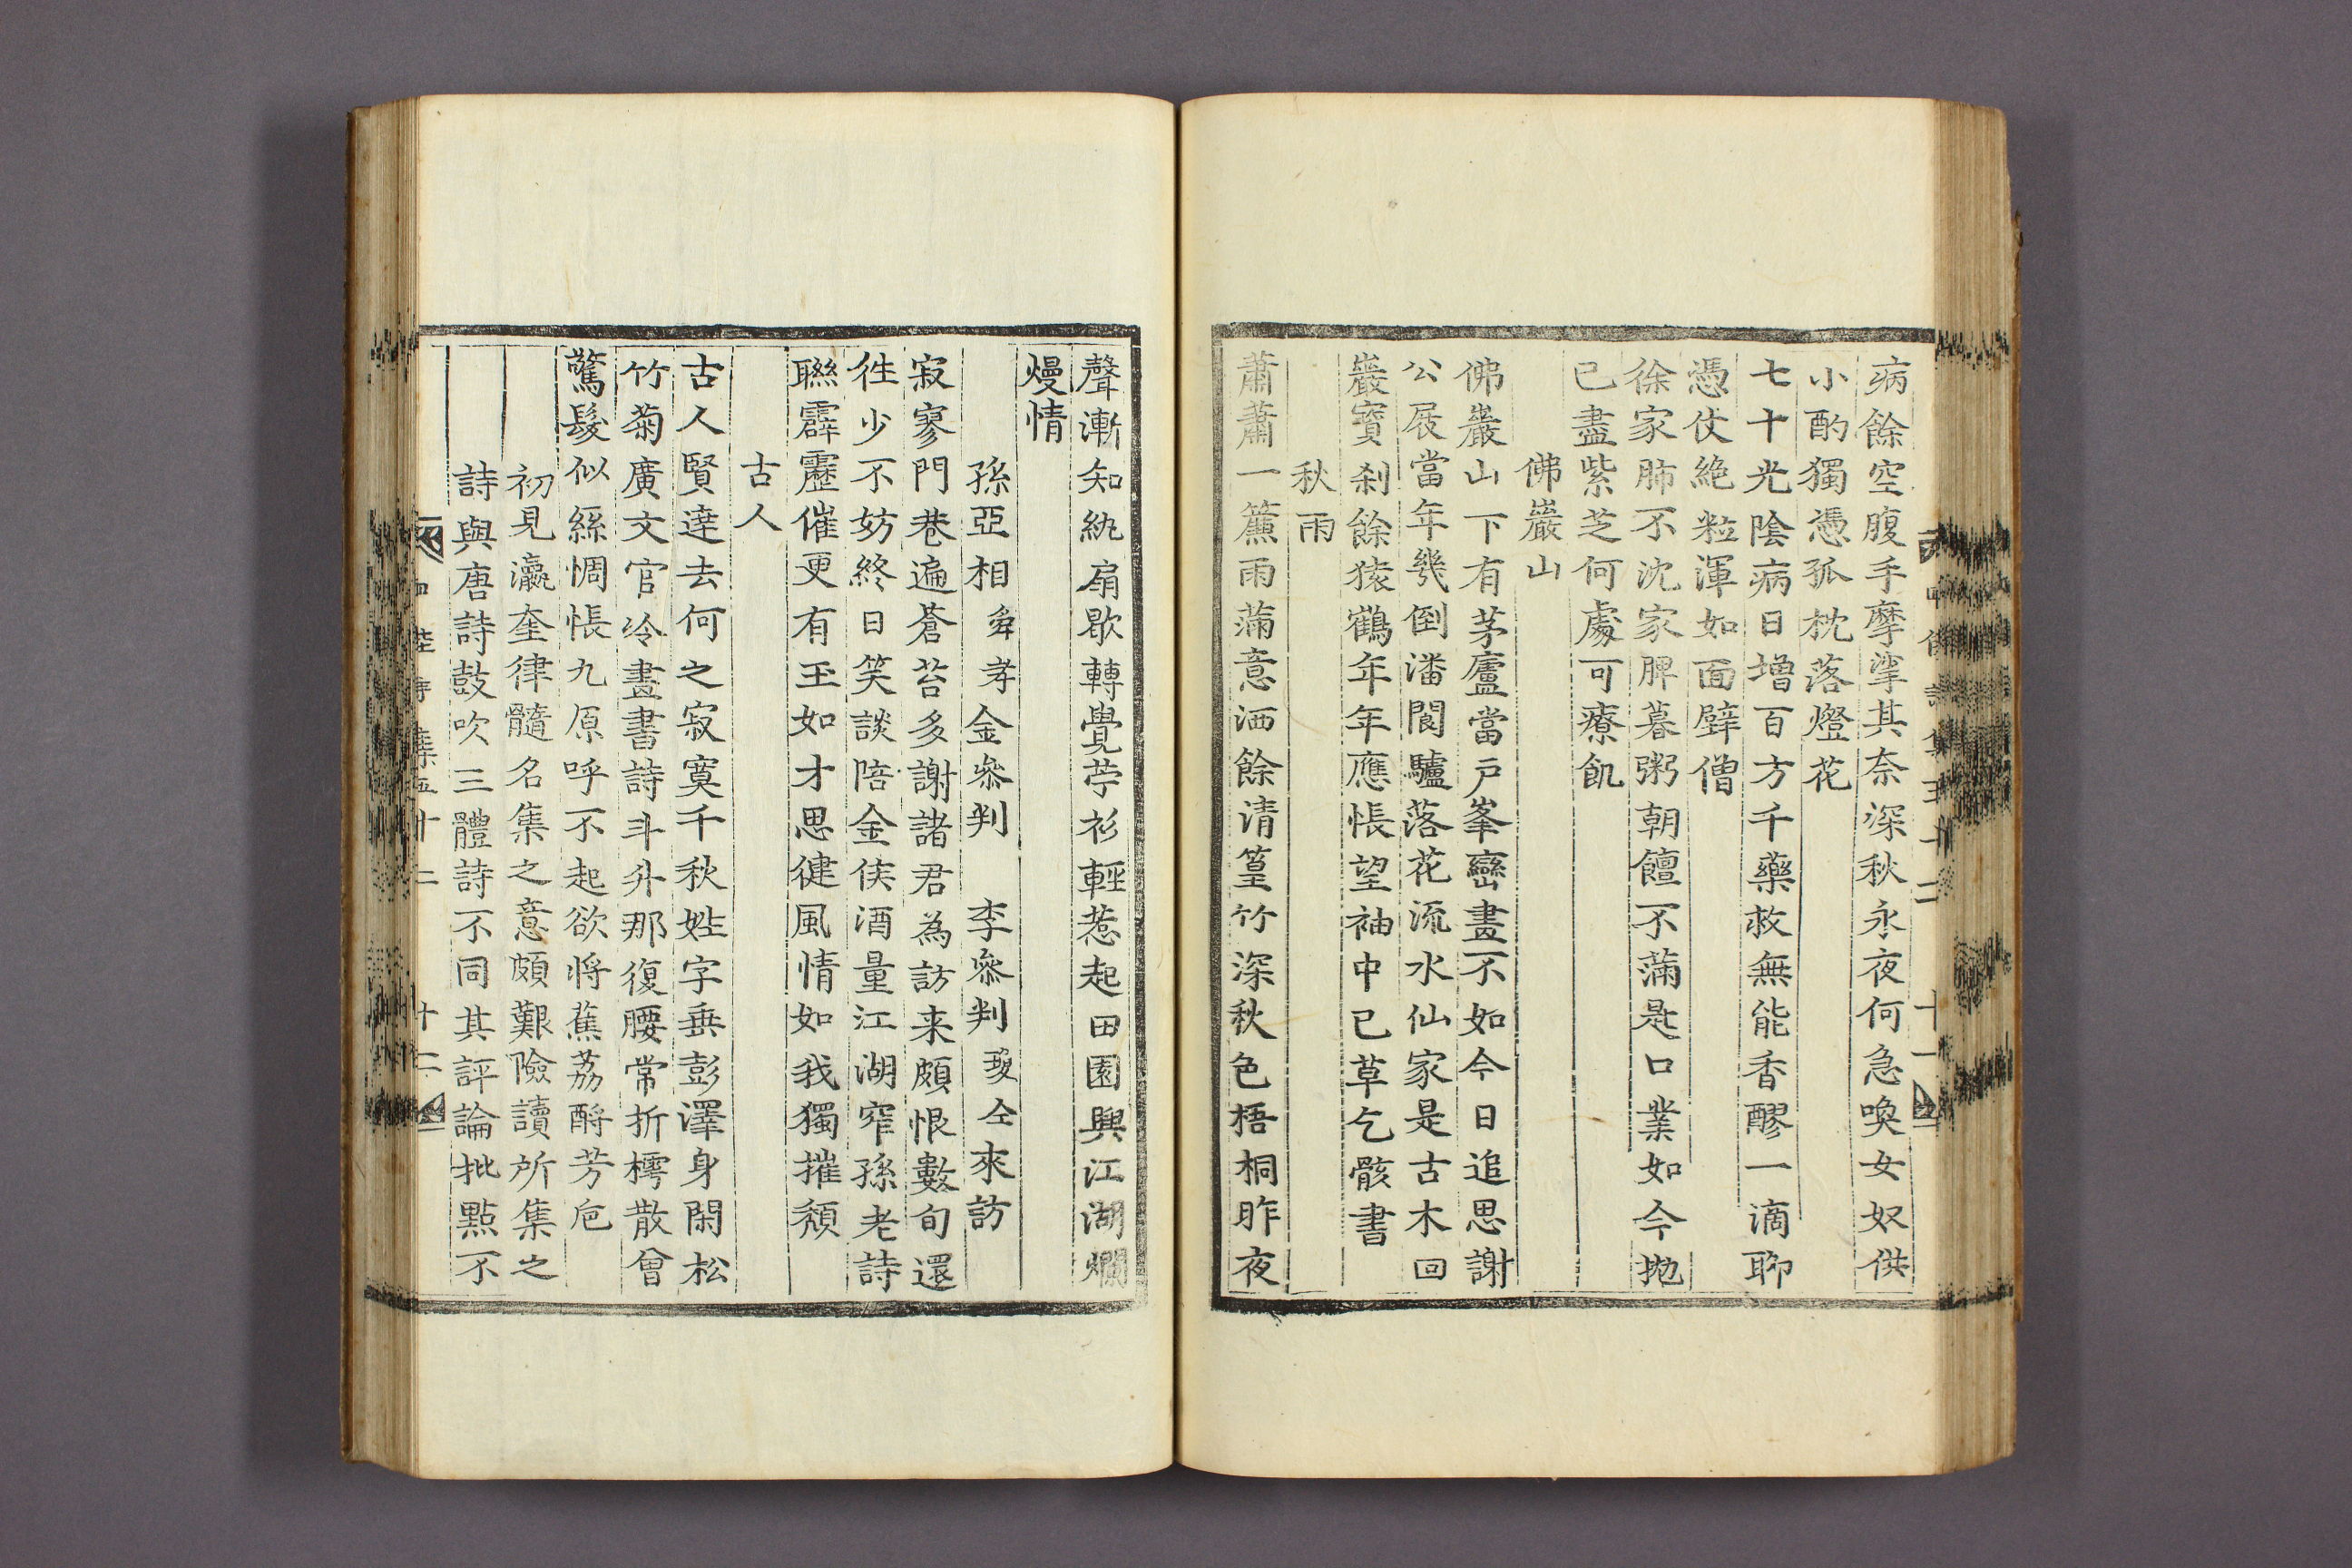 病餘空腹手摩挲其奈深秋永夜何急喚女奴供
小酌獨憑孤枕落燈花
七十光陰病日增百方千藥救無能香醪一滴聊
憑仗絶粒渾如面壁僧
徐家肺不沈家脾暮粥朝饘不滿匙口業如今抛
已盡紫芝何處可療飢
佛巖山
佛巖山下有茅廬當戶峯巒畫不如今日追思謝
公屐當年幾倒潘閬驢落花流水仙家是古木回
巖寶刹餘猿鶴年年應悵望袖中已草乞骸書
秋雨
蕭蕭一簾雨滿意洒餘清篁竹深秋色梧桐昨夜
聲漸知紈扇歇轉覺苧衫輕惹起田園興江湖爛
熳情
孫亞相舜孝金叅判 李叅判封仝來訪
寂寥門巷遍蒼苔多謝諸君為訪来頗恨數旬還
徃少不妨終日笑談陪金侯酒量江湖窄孫老詩
聯霹靂催更有玉如才思健風情如我獨摧頹
古人
古人賢達去何之寂寞千秋姓字垂彭澤身閑松
竹菊廣文官冷畫書詩斗升那復腰常折樗散曾
驚髮似絲惆悵九原呼不起欲將蕉荔酹芳卮
初見瀛奎律髓名集之意頗艱險讀所集之
詩與唐詩鼓吹三體詩不同其評論批點不
十二
十一